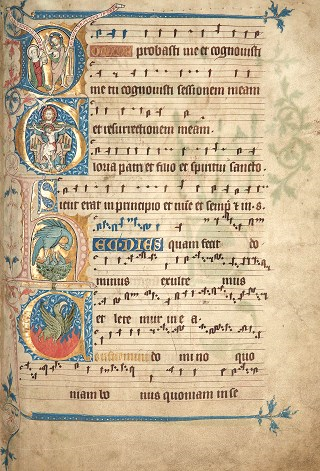 Domine probasti me et cognouisti
me tu cognouisti sessionem meam
et resurrectionem meam.
Gloria patri et filio et spiritui sancto.
Sicut erat in principio et nūc et semp̄ ⁊ in s.
HEC DIES quam fecit do
minus exulte mus
et lete mur in e a.
Confitemini do mi no quo
niam bo nus quoniam in se